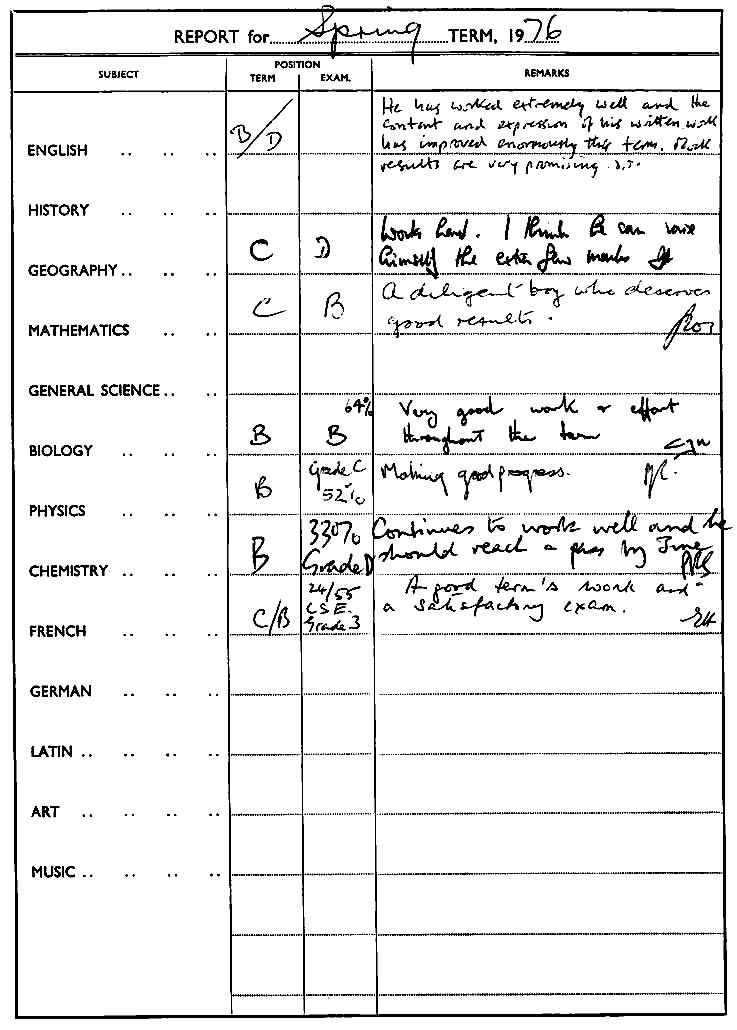 REPORT for Spring TERM, 1976
SUBJECT POSITION REMARKS
TERM EXAM.
He has worked extremely well and the
content and expression of his written work
ENGLISH .. .. .. B/D has improved enormously this term. Mock
results are very promising. D.T.
HISTORY .. .. ..
Works hard. I think he can raise
GEOGRAPHY .. .. .. C D himself the extra few marks
A diligent boy who deserves
MATHEMATICS .. .. C B good results.
GENERAL SCIENCE .. ..
64% Very good work & effort
BIOLOGY .. .. .. B B throughout the term
Grade C Making good progress.
PHYSICS .. .. .. B 52%
33% Continues to work well and he
CHEMISTRY .. .. .. B Grade D should reach a pass by June
24/55 A good term's work and
C.S.E. a satisfactory exam.
FRENCH .. .. .. C/B Grade 3
GERMAN .. .. ..
LATIN .. .. .. ..
ART .. .. .. ..
MUSIC .. .. .. ..